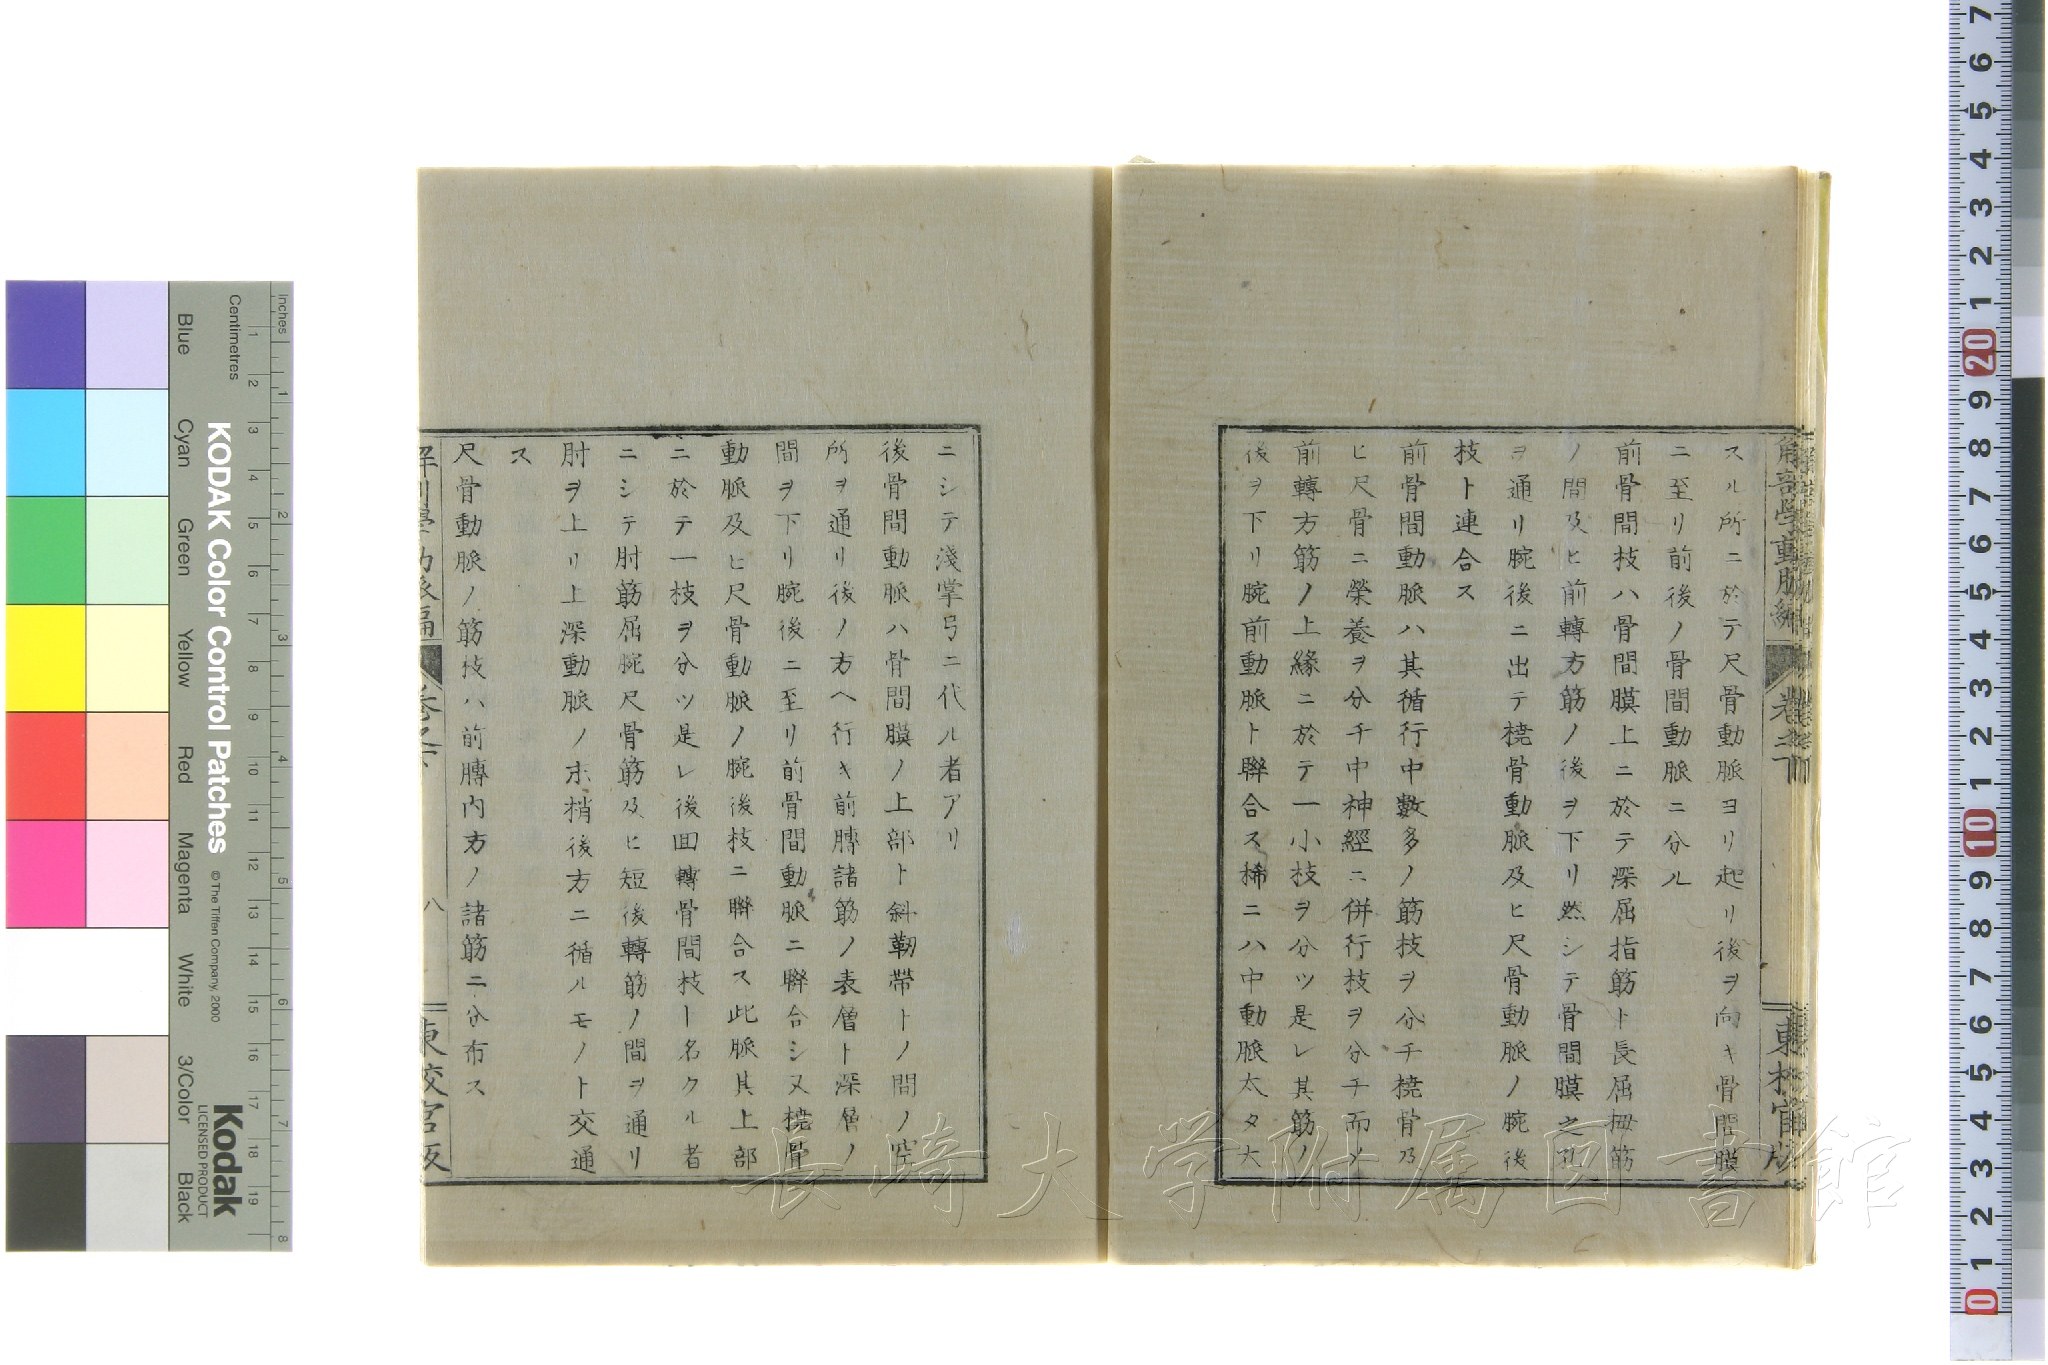 解剖學動脈編 卷之下 東校官版
スル所ニ於テ尺骨動脈ヨリ起リ後ヲ向キ骨間膜
ニ至リ前後ノ骨間動脈ニ分ル
前骨間枝ハ骨間膜上ニ於テ深屈指筋ト長屈拇筋
ノ間及ヒ前轉方筋ノ後ヲ下リ然シテ骨間膜之孔
ヲ通リ腕後ニ出テ橈骨動脈及ヒ尺骨動脈ノ腕後
枝ト連合ス
前骨間動脈ハ其循行中數多ノ筋枝ヲ分チ橈骨及
ヒ尺骨ニ榮養ヲ分チ中神經ニ併行枝ヲ分チ而ノ
前轉方筋ノ上緣ニ於テ一小枝ヲ分ツ是レ其筋ノ
後ヲ下リ腕前動脈ト聯合ス稀ニハ中動脈太タ大
ニシテ淺掌弓ニ代ル者アリ
後骨間動脈ハ骨間膜ノ上部ト斜靭帶トノ間ノ空
所ヲ通リ後ノ方ヘ行キ前膊諸筋ノ表層ト深層ノ
間ヲ下リ腕後ニ至リ前骨間動脈ニ聯合シ又橈骨
動脈及ヒ尺骨動脈ノ腕後枝ニ聯合ス此脈其上部
ニ於テ一枝ヲ分ツ是レ後回轉骨間枝ト名クル者
ニシテ肘筋屈腕尺骨筋及ヒ短後轉筋ノ間ヲ通リ
肘ヲ上リ上深動脈ノ末梢後方ニ循ルモノト交通
ス
尺骨動脈ノ筋枝ハ前膊内方ノ諸筋ニ分布ス
解剖學動脈編 卷之下 八 東校官版
KODAK Color Control Patches
© The Tiffen Company, 2000
Kodak
LICENSED PRODUCT
Inches
Centimetres
Blue Cyan Green Yellow Red Magenta White 3/Color Black
1 2 3 4 5 6 7 8 9 10 11 12 13 14 15 16 17 18 19
1 2 3 4 5 6 7 8
7 6 5 4 3 2 1 20 9 8 7 6 5 4 3 2 1 10 9 8 7 6 5 4 3 2 1 0
長崎大学附属図書館